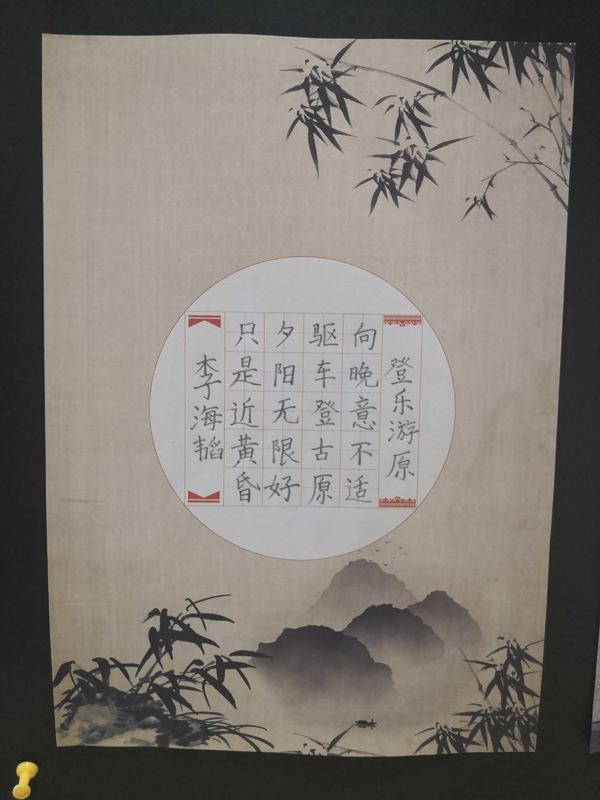 登乐游原
向晚意不适
驱车登古原
夕阳无限好
只是近黄昏
李海韬